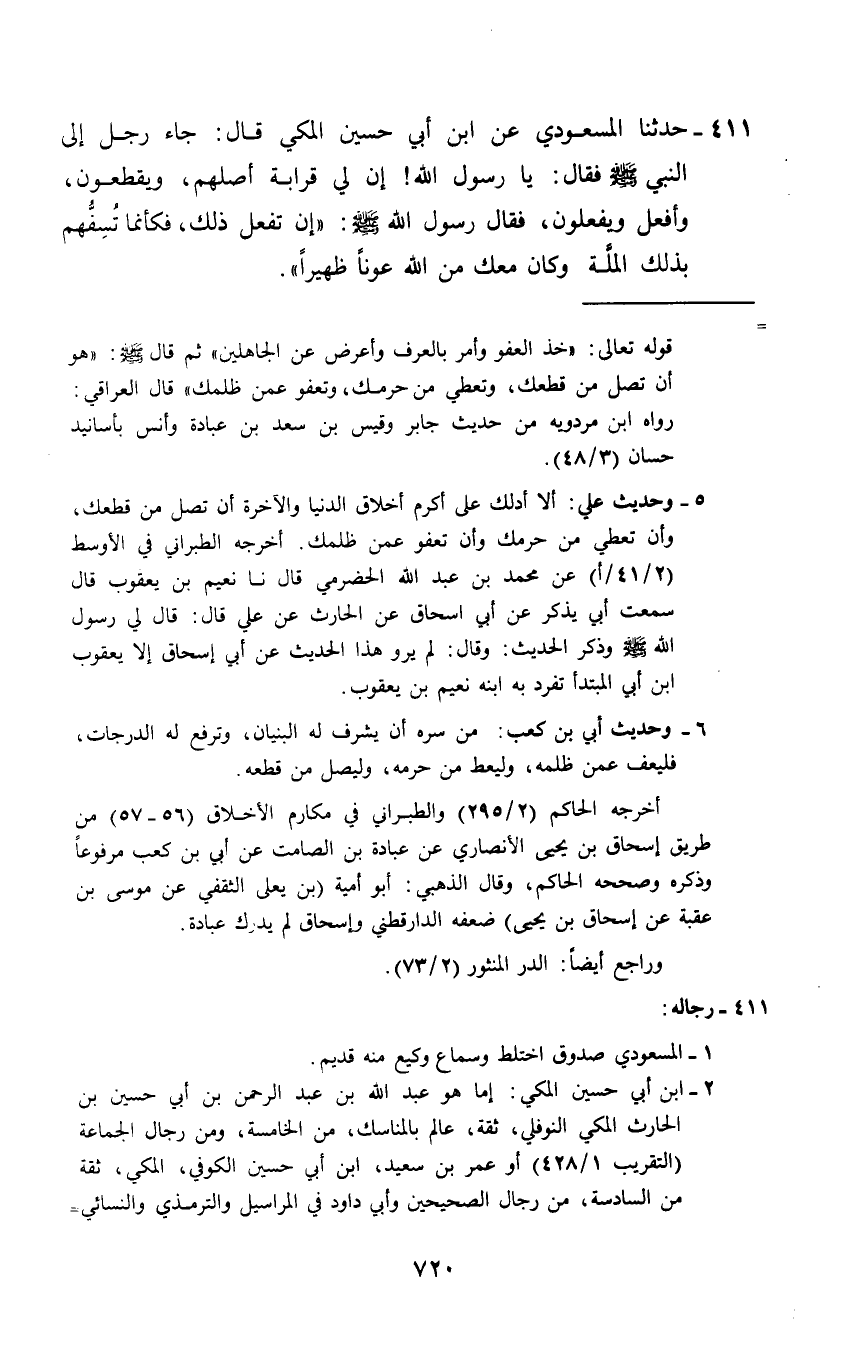 ٤١١ ـ حدثنا المسعودي عن ابن أبي حسين المكي قال: جاء رجل إلى
النبي ﷺ فقال: يا رسول الله! إن لي قرابة أصلهم، ويقطعون،
وأفعل ويفعلون، فقال رسول الله ﷺ: «إن تفعل ذلك، فكأنما تُسِفُّهم
بذلك الملَّة وكان معك من الله عوناً ظهيراً».
=
قوله تعالى: «خذ العفو وأمر بالعرف وأعرض عن الجاهلين» ثم قال ﷺ: «هو
أن تصل من قطعك، وتعطي من حرمك، وتعفو عمن ظلمك» قال العراقي:
رواه ابن مردويه من حديث جابر وقيس بن سعد بن عبادة وأنس بأسانيد
حسان (٤٨/٣).
٥ ـ وحديث علي: ألا أدلك على أكرم أخلاق الدنيا والآخرة أن تصل من قطعك،
وأن تعطي من حرمك وأن تعفو عمن ظلمك. أخرجه الطبراني في الأوسط
(٤١/٢/أ) عن محمد بن عبد الله الحضرمي قال نا نعيم بن يعقوب قال
سمعت أبي يذكر عن أبي اسحاق عن الحارث عن علي قال: قال لي رسول
الله ﷺ وذكر الحديث: وقال: لم يرو هذا الحديث عن أبي إسحاق إلا يعقوب
ابن أبي المبتدأ تفرد به ابنه نعيم بن يعقوب.
٦ ـ وحديث أبي بن كعب: من سره أن يشرف له البنيان، وترفع له الدرجات،
فليعف عمن ظلمه، وليعط من حرمه، وليصل من قطعه.
أخرجه الحاكم (٢٩٥/٢) والطبراني في مكارم الأخلاق (٥٦ ـ ٥٧) من
طريق إسحاق بن يحيى الأنصاري عن عبادة بن الصامت عن أبي بن كعب مرفوعاً
وذكره وصححه الحاكم، وقال الذهبي: أبو أمية (بن يعلى الثقفي عن موسى بن
عقبة عن إسحاق بن يحيى) ضعفه الدارقطني وإسحاق لم يدرك عبادة.
وراجع أيضاً: الدر المنثور (٧٣/٢).
٤١١ ـ رجاله:
١ ـ المسعودي صدوق اختلط وسماع وكيع منه قديم.
٢ ـ ابن أبي حسين المكي: إما هو عبد الله بن عبد الرحمن بن أبي حسين بن
الحارث المكي النوفلي، ثقة، عالم بالمناسك، من الخامسة، ومن رجال الجماعة
(التقريب ٤٢٨/١) أو عمر بن سعيد، ابن أبي حسين الكوفي، المكي، ثقة
من السادسة، من رجال الصحيحين وأبي داود في المراسيل والترمذي والنسائي=
٧٢٠